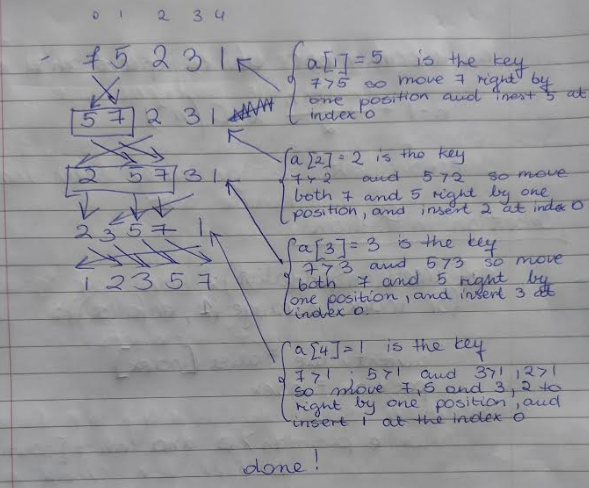 0 1 2 3 4
7 5 2 3 1
a[1] = 5 is the key
7>5 so move 7 right by
one position and inest 5 at
index 0
5 7 2 3 1
a[2] = 2 is the key
7>2 and 5>2 so move
both 7 and 5 right by one
position, and insert 2 at index 0
2 5 7 3 1
a[3] = 3 is the key
7>3 and 5>3 so move
both 7 and 5 right by
one position, and insert 3 at
index 0
2 3 5 7 1
1 2 3 5 7
a[4] = 1 is the key
7>1, 5>1 and 3>1, 2>1
so move 7, 5 and 3, 2 to
right by one position, and
insert 1 at the index 0
done!